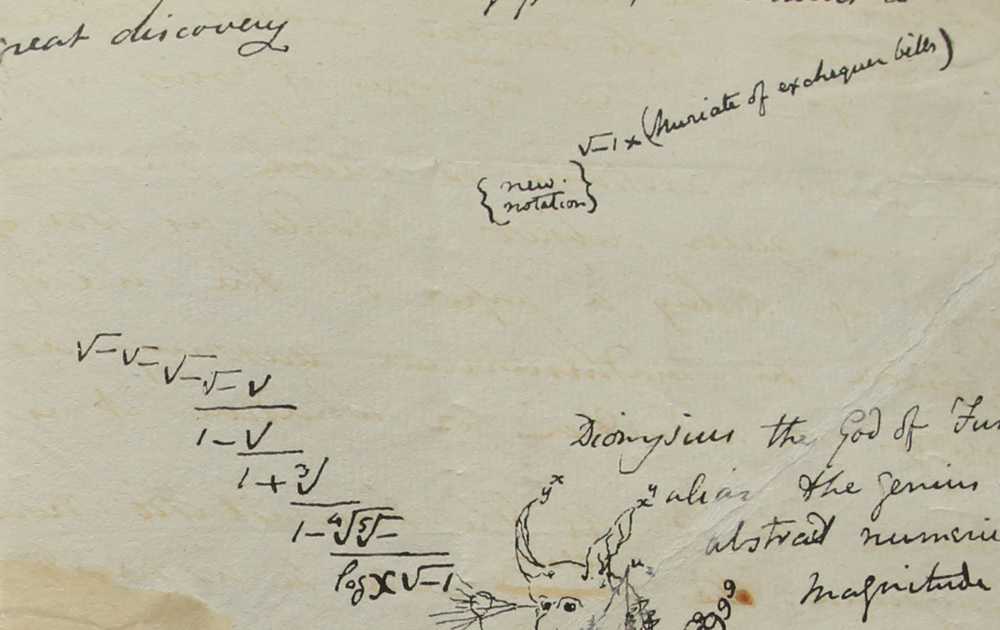 great discovery
√-1 × (Muriate of exchequer bills)
{new notation}
√-√-√-√-√
1-√
1+∛
1-∜⁵√-
log x √-1
Dionysius the God of
y^x
x^y alias the genius
abstract
Magnitude
999